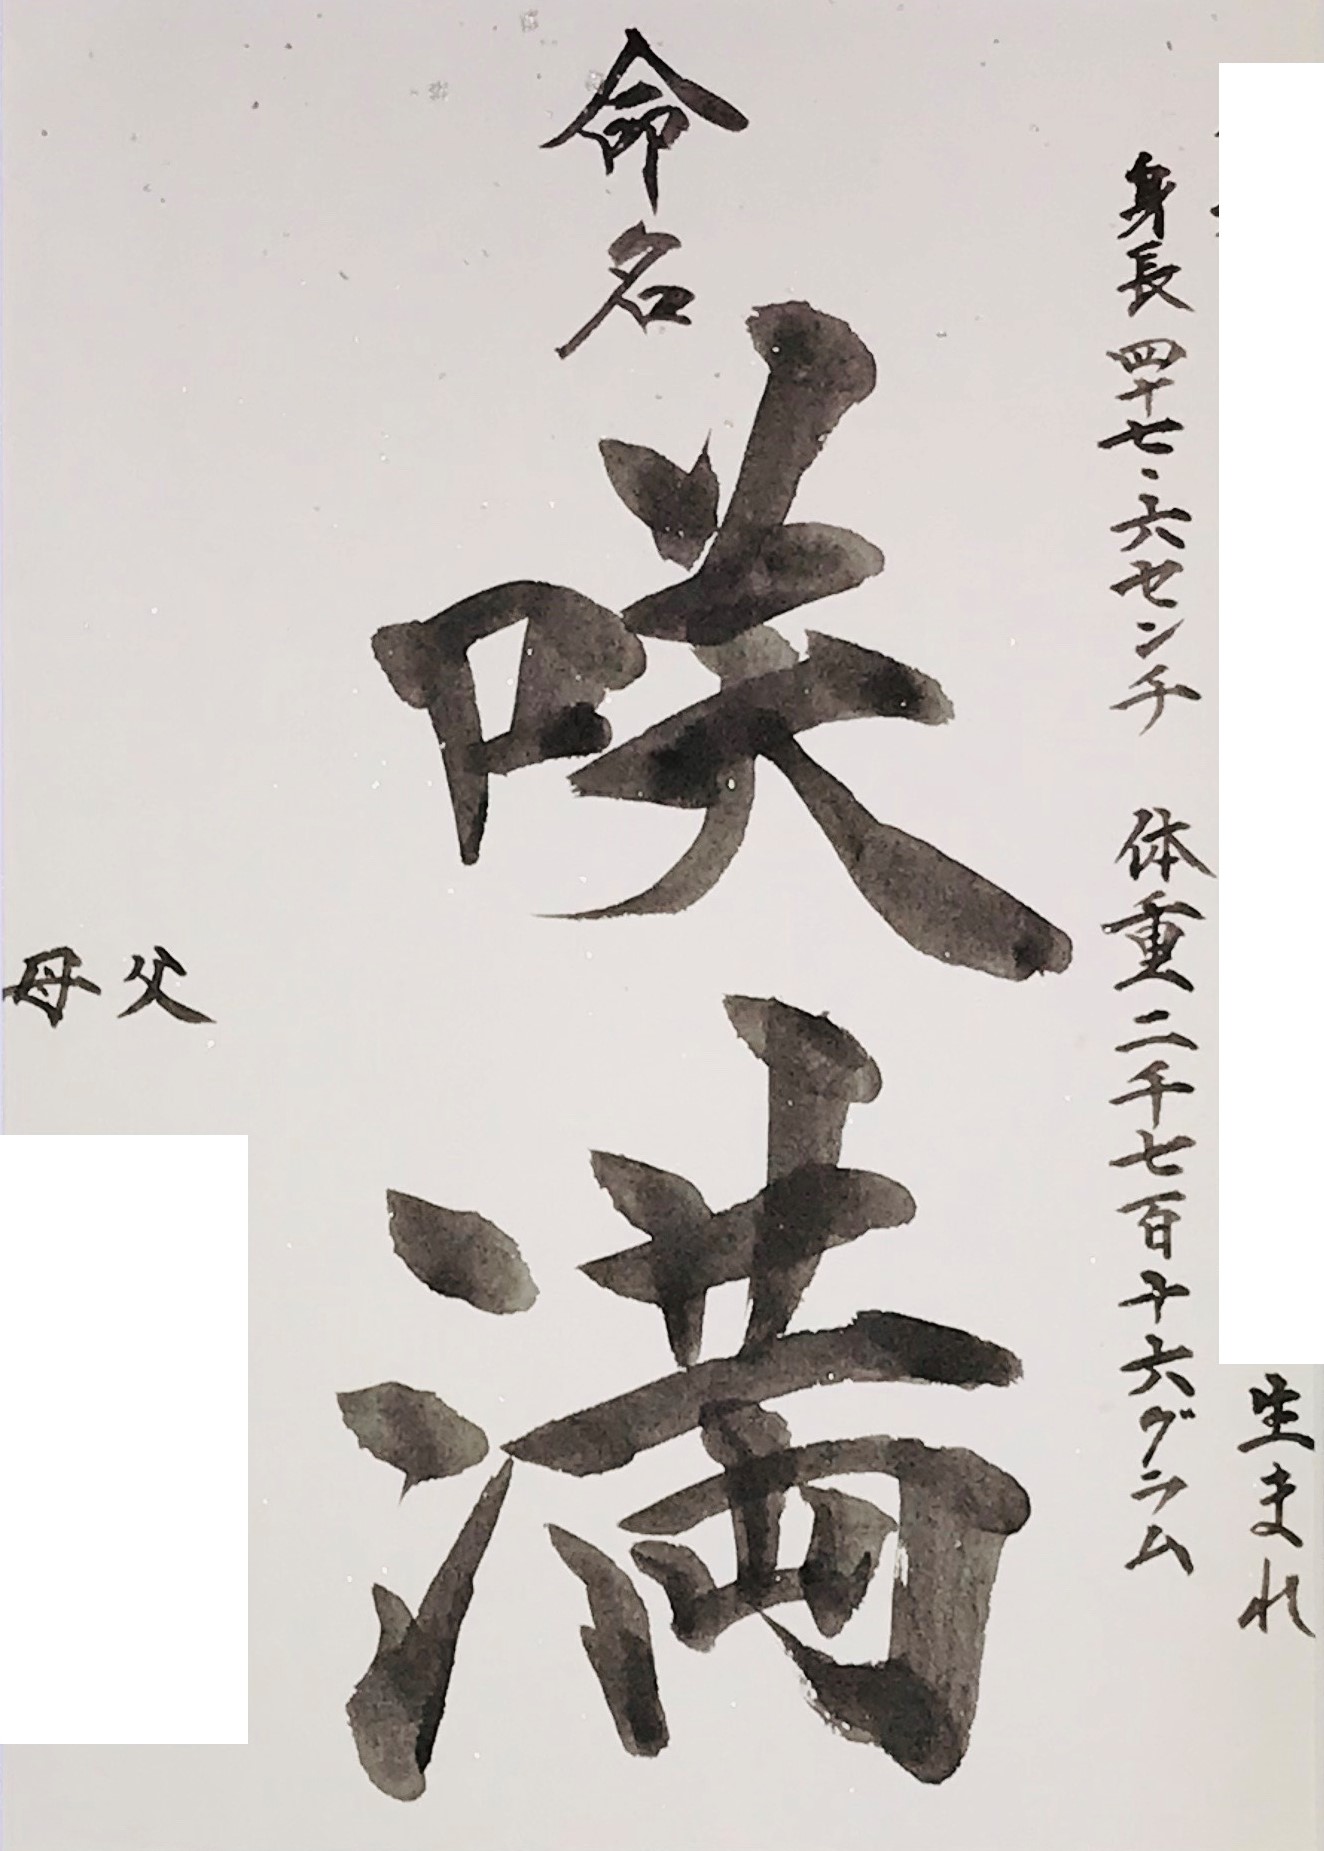 生まれ
身長四十七・六センチ 体重二千七百十六グラム
命名
咲満
父
母